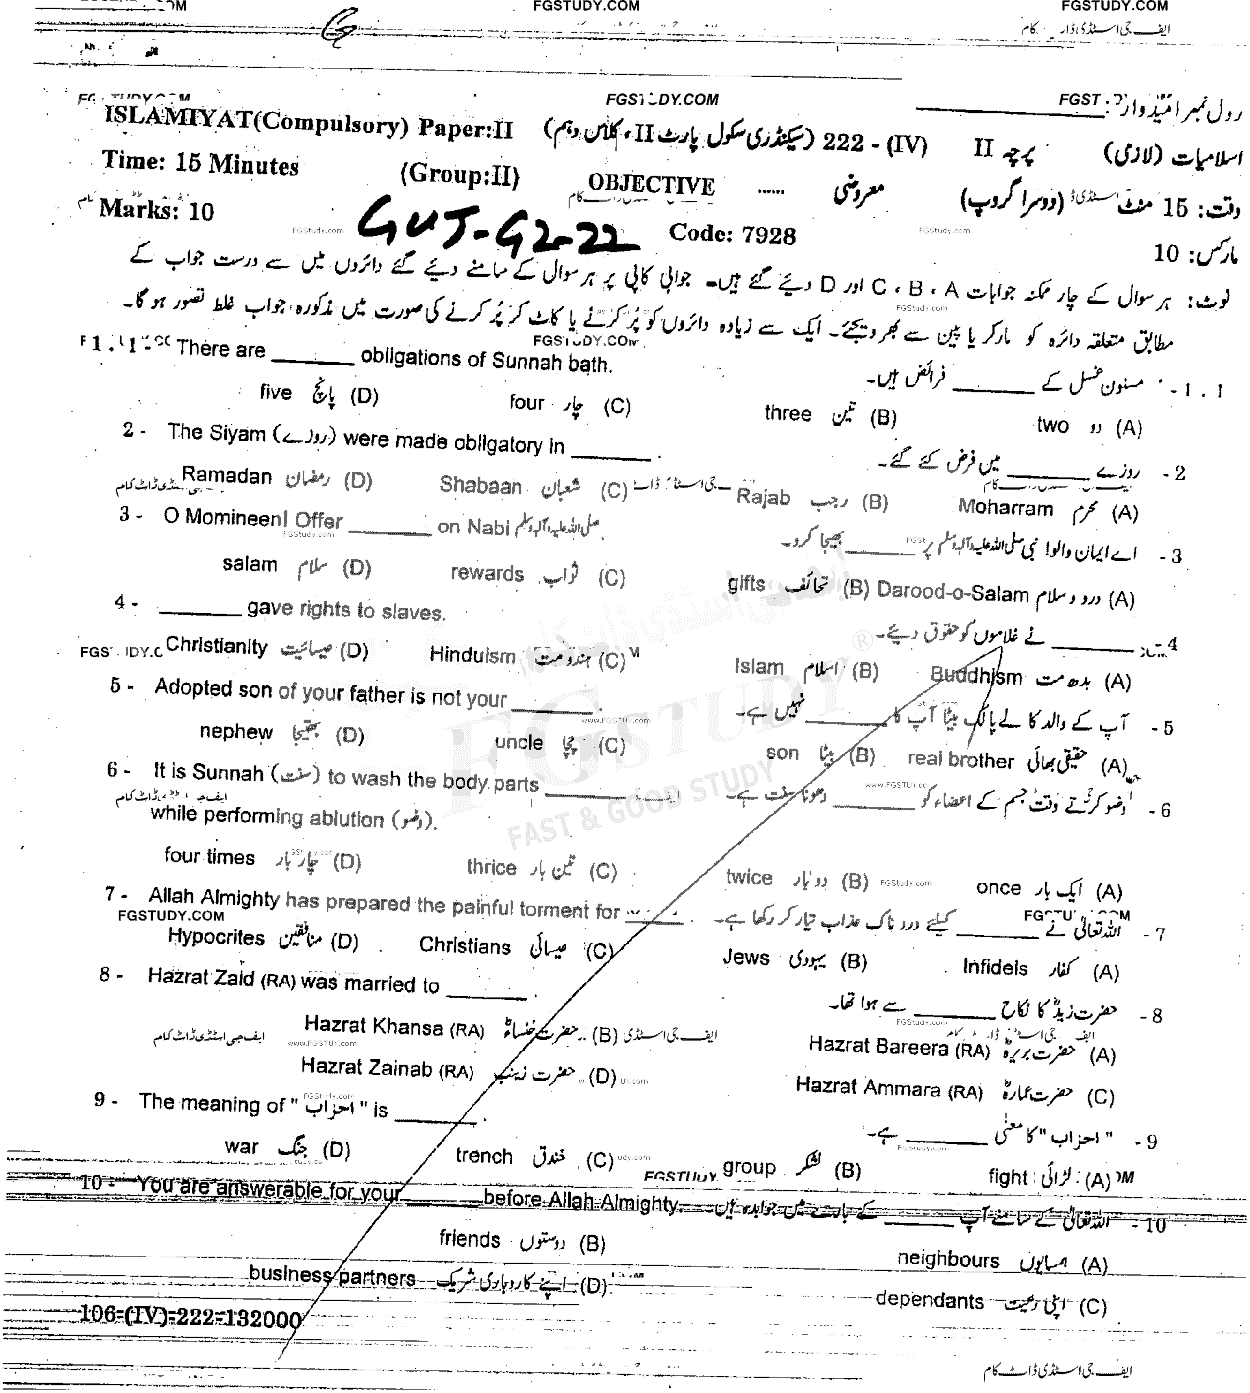 FGSTUDY.COM FGSTUDY.COM
ایف جی اسٹڈی ڈاٹ کام
FGSTUDY.COM
رول نمبر امیدوار:
ISLAMIYAT(Compulsory) Paper:II (سیکنڈری سکول پارٹ II، کلاس دہم) 222 - (IV) پرچہ II اسلامیات (لازمی)
Time: 15 Minutes (Group:II) OBJECTIVE ...... معروضی وقت: 15 منٹ (دوسرا گروپ)
Marks: 10 GUJ-G2-22 Code: 7928 مارکس: 10
نوٹ: ہر سوال کے چار ممکنہ جوابات A ، B ، C اور D دیئے گئے ہیں۔ جوابی کاپی پر ہر سوال کے سامنے دیئے گئے دائروں میں سے درست جواب کے
مطابق متعلقہ دائرہ کو مارکر یا پین سے بھر دیجئے۔ ایک سے زیادہ دائروں کو پُر کرنے یا کاٹ کر پُر کرنے کی صورت میں مذکورہ جواب غلط تصور ہو گا۔
1.1- There are ______ obligations of Sunnah bath. 1.1- مسنون غسل کے ______ فرائض ہیں۔
five پانچ (D) four چار (C) three تین (B) two دو (A)
2 - The Siyam (روزے) were made obligatory in ______ . 2- روزے ______ میں فرض کئے گئے۔
Ramadan رمضان (D) Shabaan شعبان (C) Rajab رجب (B) Moharram محرم (A)
3 - O Momineen! Offer ______ on Nabi صلی اللہ علیہ وآلہ وسلم 3- اے ایمان والو! نبی صلی اللہ علیہ وآلہ وسلم پر ______ بھیجا کرو۔
salam سلام (D) rewards ثواب (C) gifts تحائف (B) Darood-o-Salam درود و سلام (A)
4 - ______ gave rights to slaves. 4- ______ نے غلاموں کو حقوق دیئے۔
Christianity عیسائیت (D) Hinduism ہندومت (C) Islam اسلام (B) Buddhism بدھ مت (A)
5 - Adopted son of your father is not your ______ . 5- آپ کے والد کا لے پالک بیٹا آپ کا ______ نہیں ہے۔
nephew بھتیجا (D) uncle چچا (C) son بیٹا (B) real brother حقیقی بھائی (A)
6 - It is Sunnah (سنت) to wash the body parts ______ 6- وضو کرتے وقت جسم کے اعضاء کو ______ دھونا سنت ہے۔
while performing ablution (وضو).
four times چار بار (D) thrice تین بار (C) twice دو بار (B) once ایک بار (A)
7 - Allah Almighty has prepared the painful torment for ______ . 7- اللہ تعالیٰ نے ______ کیلئے درد ناک عذاب تیار کر رکھا ہے۔
FGSTUDY.COM
Hypocrites منافقین (D) Christians عیسائی (C) Jews یہودی (B) Infidels کفار (A)
8 - Hazrat Zaid (RA) was married to ______ . 8- حضرت زیدؓ کا نکاح ______ سے ہوا تھا۔
Hazrat Khansa (RA) حضرت خنساءؓ (B) Hazrat Bareera (RA) حضرت بریرہؓ (A)
Hazrat Zainab (RA) حضرت زینبؓ (D) Hazrat Ammara (RA) حضرت عمارہؓ (C)
9 - The meaning of "احزاب" is ______ . 9- "احزاب" کا معنی ______ ہے۔
war جنگ (D) trench خندق (C) group لشکر (B) fight لڑائی (A)
10 - You are answerable for your ______ before Allah Almighty. 10- اللہ تعالیٰ کے سامنے آپ ______ کے بارے میں جوابدہ ہیں۔
friends دوستوں (B) neighbours ہمسایوں (A)
business partners اپنے کاروباری شریک (D) dependants اپنی رعیت (C)
106=(IV)=222=132000
ایف جی اسٹڈی ڈاٹ کام
FGSTUDY
FAST & GOOD STUDY